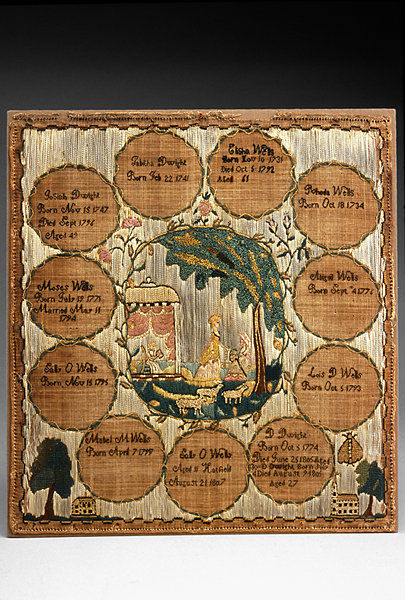 Elisha Wells
Born Nov 10 1731
Died Oct 5 1792
Aged 61
Tabitha Dwight
Born Feb 22 1741
Rohoda Wells
Born Oct 18 1734
Josiah Dwight
Born Nov 15 1747
Died Sept 1796
Aged 49
Abigail Wells
Born Sept 4 1776
Moses Wells
Born Feb 19 1771
Married Mar 11
1794
Lois D Wells
Born Oct 5 1793
Saly O Wells
Born Nov 15 1795
Mabel M Wells
Born April 7 1797
Saly O Wells
Aged 11 Hatfield
August 21 1807
D Dwight
Born Oct 5 1774
Died June 25 1805 Aged
D Dwight Born
Died August 9 1805
Aged 27